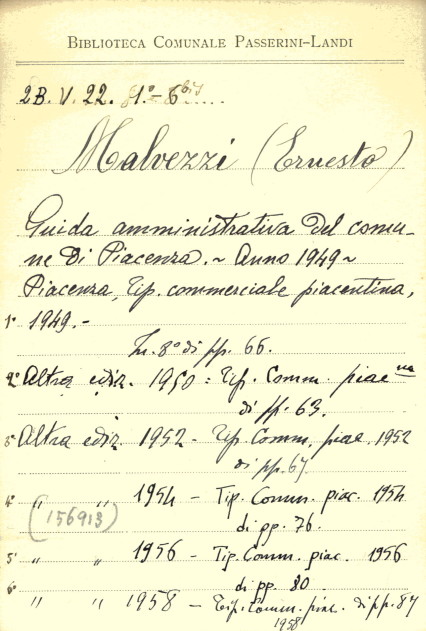 BIBLIOTECA COMUNALE PASSERINI-LANDI
2B. V. 22. 1º - 6 bis
Malvezzi (Ernesto)
Guida amministrativa del comu-
ne di Piacenza. ~ Anno 1949 ~
Piacenza, Tip. commerciale piacentina,
1º 1949. -
In. 8º di pp. 66.
2º Altra ediz. 1950 : Tip. Comm. piac na
di pp. 63.
3º Altra ediz. 1952 - Tip. Comm. piac. 1952
di pp. 67.
4º " " 1954 - Tip. Comm. piac. 1954
(156913) di pp. 76.
5º " " 1956 - Tip. Comm. piac. 1956
di pp. 80
6º " " 1958 - Tip. Comm. piac. di pp. 87
1958